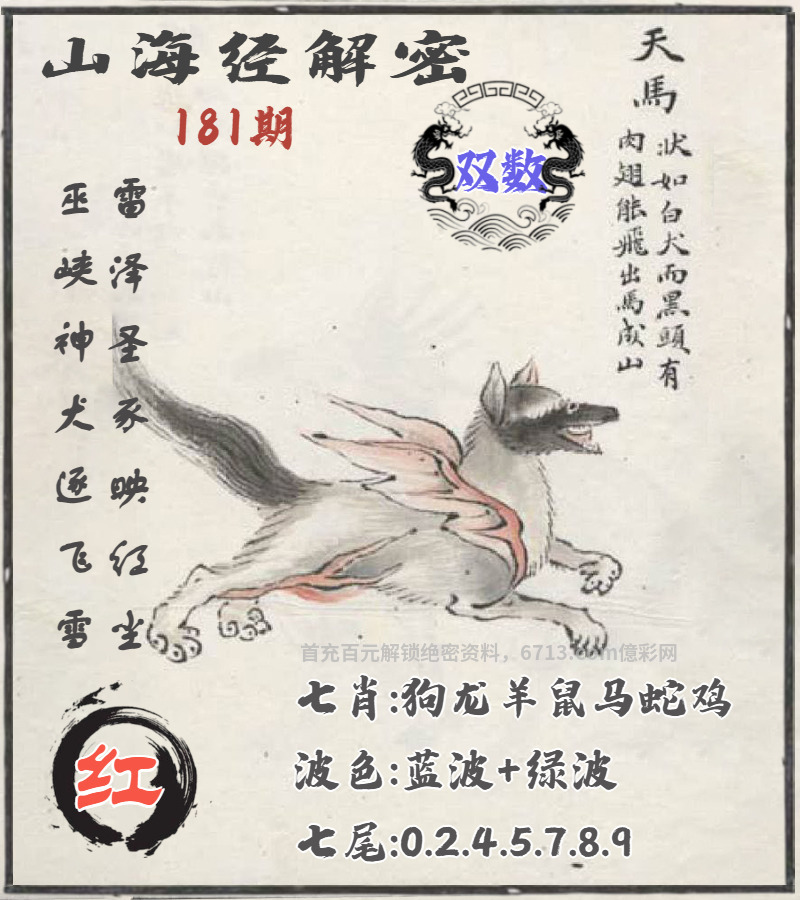 山海经解密
181期
双数
天馬
狀如白犬而黑頭有
肉翅能飛出馬成山
雷泽圣豕映红尘
巫峡神犬逐飞雪
首充百元解锁绝密资料，6713.com億彩网
七肖:狗龙羊鼠马蛇鸡
红
波色:蓝波+绿波
七尾:0.2.4.5.7.8.9